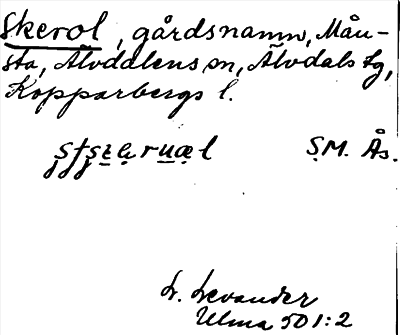 Skerol, gårdsnamn, Mån-
sta, Älvdalens sn, Älvdals tg,
Kopparbergs l.
S.M. Ås.
L. Levander
Ulma 501:2